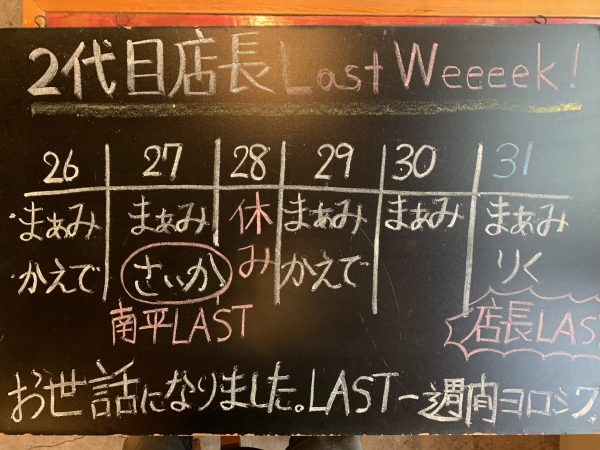 2代目店長Last Weeeek!
26 27 28 29 30 31
まぁみ まぁみ 休み まぁみ まぁみ まぁみ
かえで さぃか かえで りく
南平LAST 店長LAS
お世話になりました。LAST一週間ヨロシク